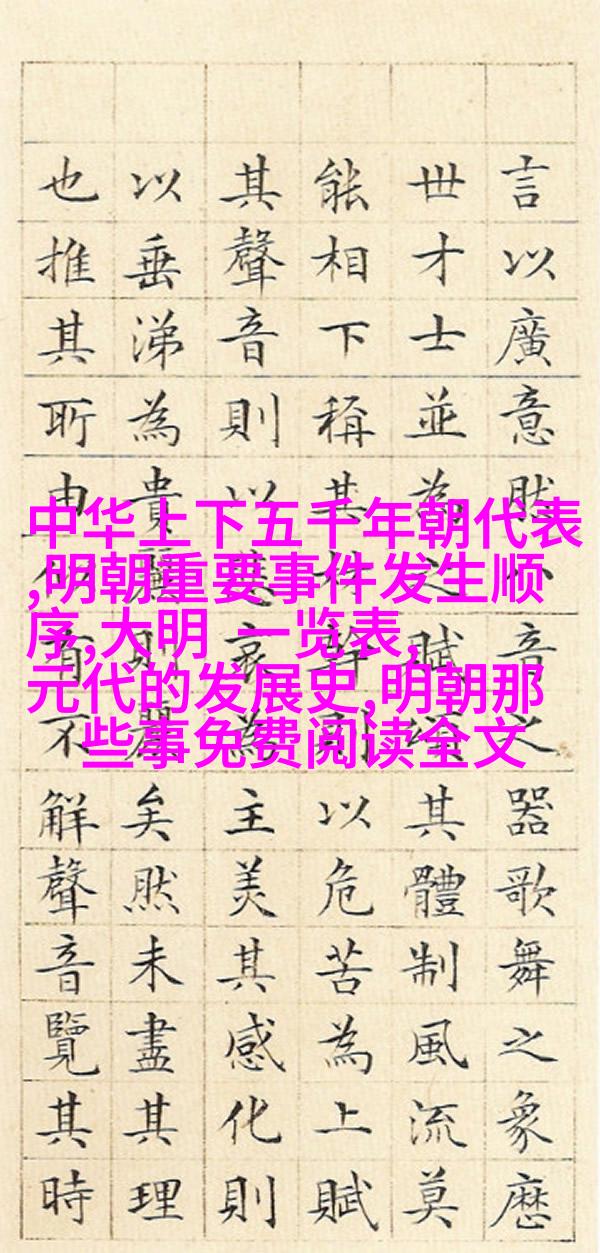 中华上下五千年朝代表
,明朝重要事件发生顺
序,大明 一览表,
元代的发展史,明朝那
些事免费阅读全文
言以廣意然八音之器歌舞之象歷
世才士並為之賦頌其體制風流莫
能相下稱其材幹則以危苦為上賦
其聲音則以悲哀為主美其感化則
以垂涕為貴麗則麗矣然未盡其理
也推其所由似有不解聲音覽其時